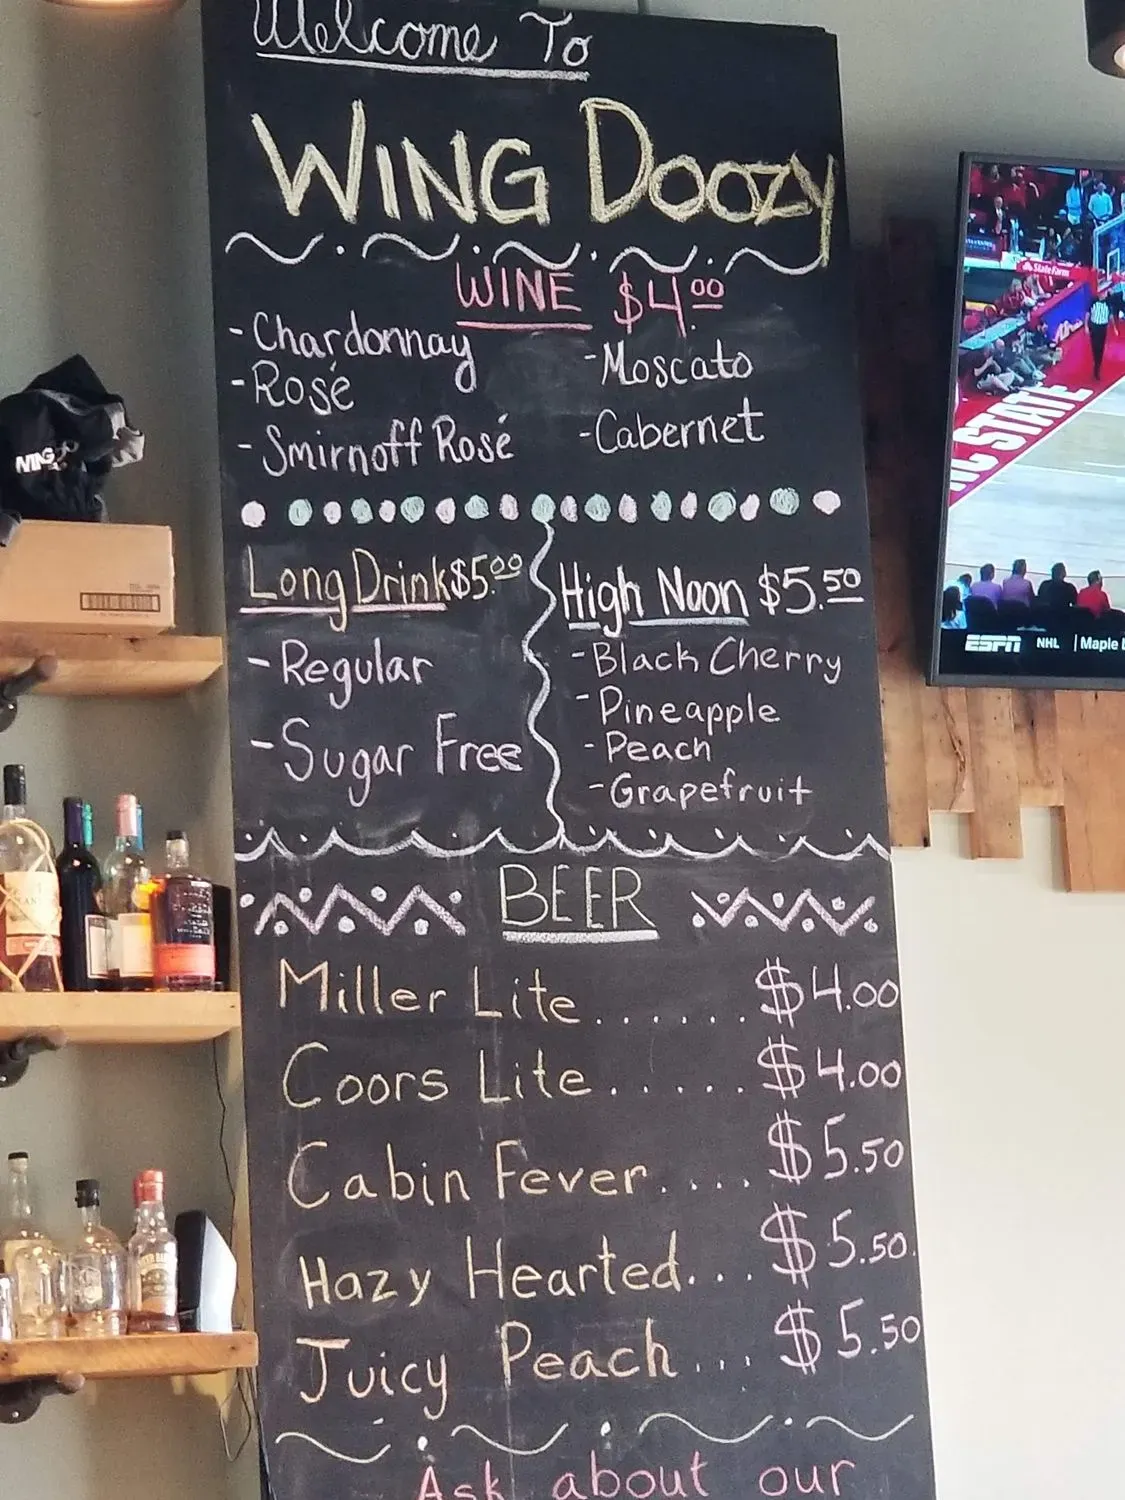 Welcome To
WING DOOZY
WINE $4.00
-Chardonnay
-Rosé
-Smirnoff Rosé
-Moscato
-Cabernet
Long Drink $5.00
-Regular
-Sugar Free
High Noon $5.50
-Black Cherry
-Pineapple
-Peach
-Grapefruit
BEER
Miller Lite...... $4.00
Coors Lite...... $4.00
Cabin Fever.... $5.50
Hazy Hearted... $5.50.
Juicy Peach... $5.50
Ask about our
StateFarm
NC STATE
ESPN NHL | Maple